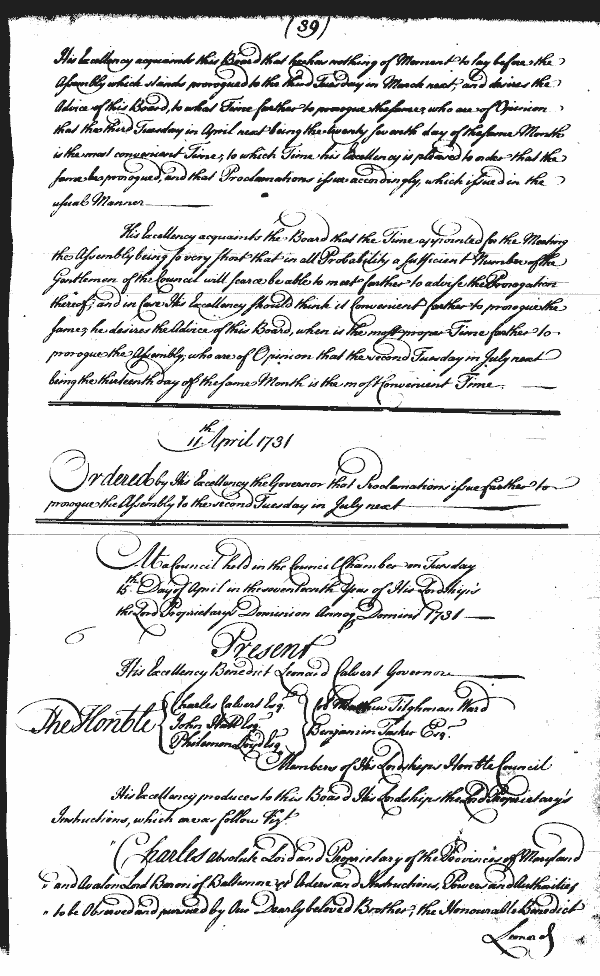 (39)
His Excellency acquaints this Board that he has nothing of Moment to lay before the
Assembly which stands prorogued to the third Tuesday in March next, and desires the
Advice of this Board, to what Time farther to prorogue the same; who are of Opinion
that the third Tuesday in April next being the twenty seventh day of the same Month
is the most convenient Time, to which Time his Excellency is pleased to order that the
same be prorogued, and that Proclamations issue accordingly, which issued in the
usual Manner
His Excellency acquaints the Board that the Time appointed for the Meeting
the Assembly being so very short that in all Probability a sufficient Number of the
Gentlemen of the Council will scarce be able to meet farther to advise the Prorogation
thereof; and in Case His Excellency should think it Convenient farther to prorogue the
same; he desires the Advice of this Board, when is the most proper Time farther to
prorogue the Assembly, who are of Opinion that the second Tuesday in July next
being the thirteenth day of the same Month is the most Convenient Time.
11th April 1731
Ordered by His Excellency the Governor that Proclamations issue farther to
prorogue the Assembly to the second Tuesday in July next
At a Council held in the Council Chamber on Tuesday
15th Day of April in the seventeenth Year of His Lordship's
the Lord Proprietary's Dominion Annoq Domini 1731
Present
His Excellency Benedict Leonard Calvert Governor
The Honble { Charles Calvert Esqr. } Col Matthew Tilghman Ward
John Hall Esqr. Benjamin Tasker Esqr.
Philemon Lloyd Esqr.
Members of His Lordships Honble Council
His Excellency produces to this Board His Lordship the Lord Proprietary's
Instructions, which are as follow Vizt.
" Charles absolute Lord and Proprietary of the Provinces of Maryland
" and Avalon Lord Baron of Baltimore &c Orders and Instructions, Powers and Authorities
" to be Observed and pursued by Our Dearly beloved Brother, the Honourable Benedict
Leonard